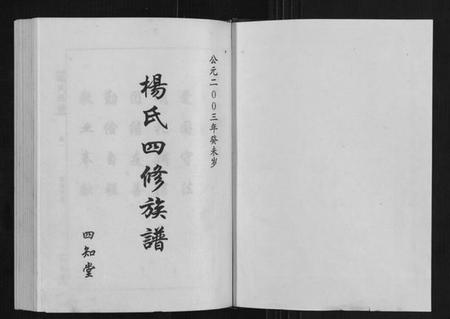 公元二００三年癸未岁
楊氏四修族譜
四知堂